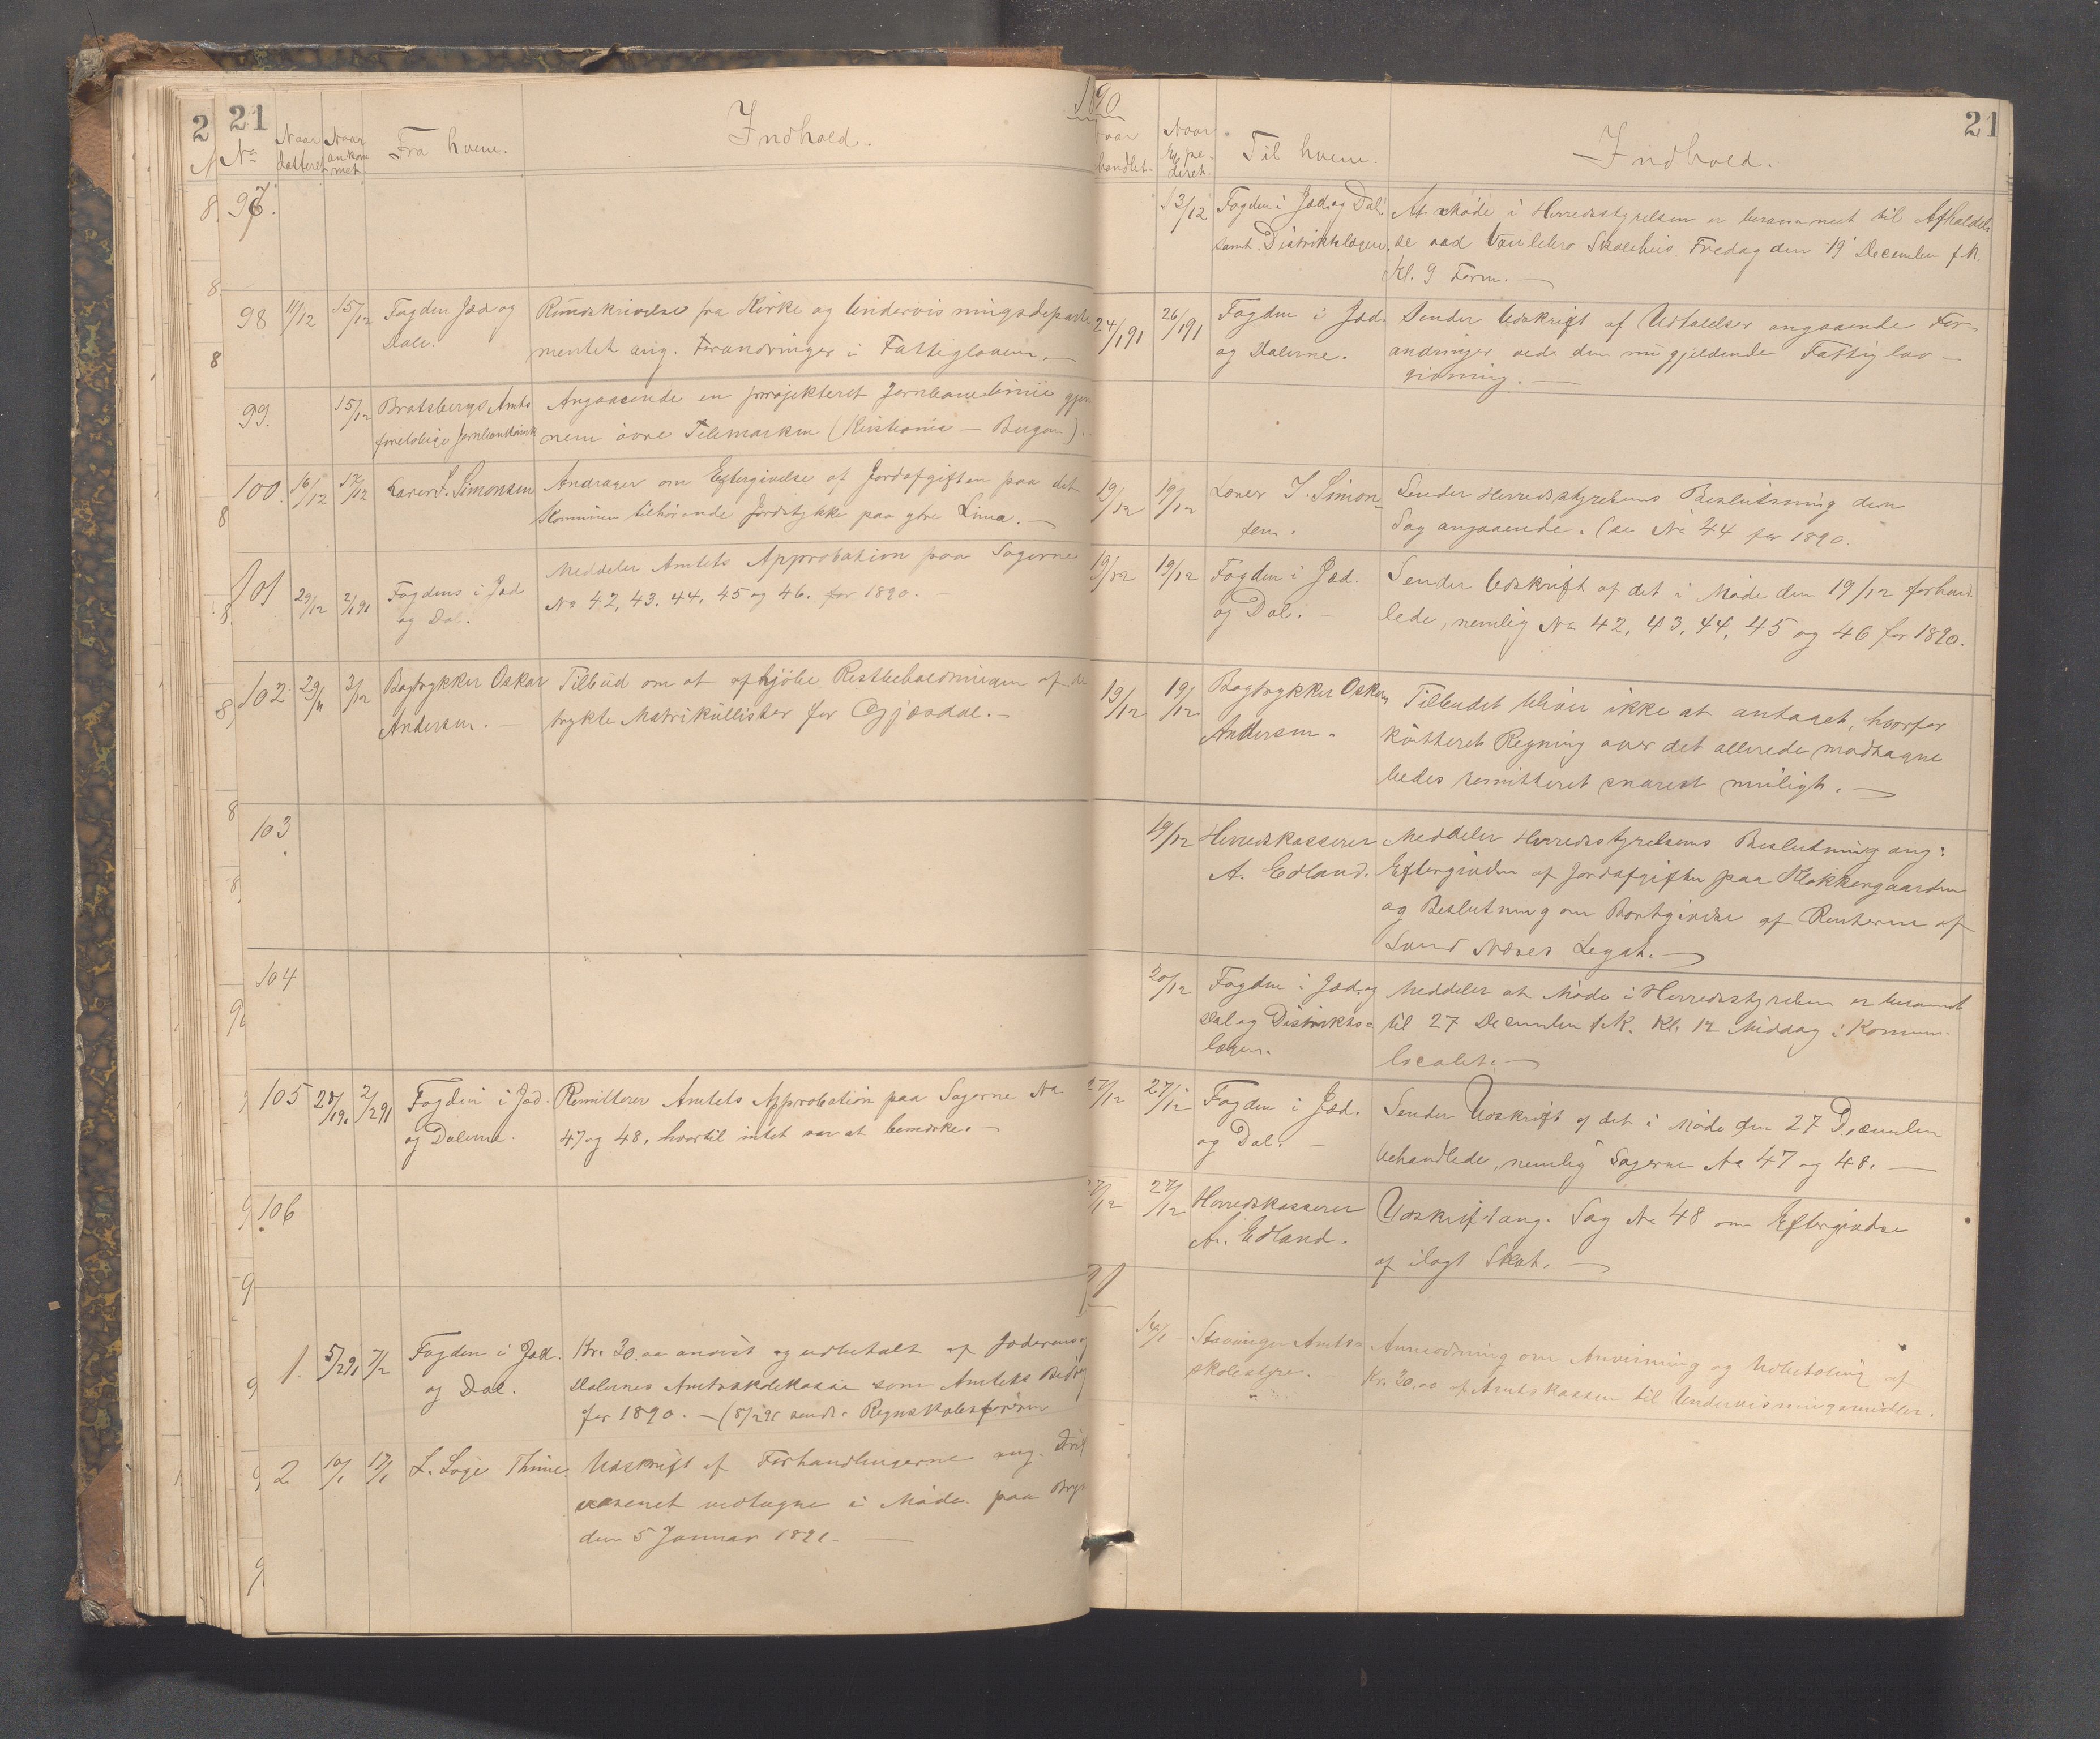 21
2
1890
21
No
Naar datteret
Naar ankommet
Fra hvem.
Indhold.
handlet.
Naar Expederet
Til hvem.
Indhold.
97.
13/12 Fogden i Jæd. og Dal.
samt Distriktslægen.
At Møde i Herredsstyrelsen er berammet til Afholdel-
se ved Skolehus Fredag den 19 December f.k.
Kl. 9 Form. —
98 11/12 15/12 Fogden Jæd og
Dale.
Rundskrivelse fra Kirke og Undervisningsdeparte
mentet ang. Forandringer i Fattigloven. —
24/1 91 26/1 91 Fogden i Jæd.
og Dalerne.
Sender Udskrift af Udtalelser angaaende For-
andringer ved den nu gjældende Fattiglov-
givning. —
99. 15/12 Bratsbergs Amts
foreløbige
Angaaende en projekteret Jernbanelinie gjen
nem øvre Telemarken (Kristiania — Bergen).
100. 16/12 17/12 Laver S. Simonsen
Andrager om Eftergivelse af Jordafgiften paa det
Kommunen tilhørende Jordstykke paa ytre Lima. —
19/12 19/12 Laver S. Simon-
sen.
Sender Herredsstyrelsens Beslutning den
Sag angaaende. (se No 44 for 1890.
101 29/12 2/1 91 Fogdens i Jæd
og Dal.
Meddeler Amtets Approbation paa Sagerne
No 42, 43. 44, 45 og 46. for 1890. —
19/12 19/12 Fogden i Jæd.
og Dal. —
Sender Udskrift af det i Møde den 19/12 forhand
lede, nemlig No 42, 43, 44, 45 og 46 for 1890.
102 29/11 3/12 Bogtrykker Oskar
Andersen. —
Tilbud om at afkjøbe Restbeholdningen af de
trykte Matrikullister for Gjæsdal. —
19/12 19/12 Bogtrykker Oskar
Andersen.
Tilbudet bliver ikke at antaget, hvorfor
kvitteret Regning over det allerede modtagne
bedes remitteret snarest muligt. —
103
19/12 Herredskasserer
A. Edland.
Meddeler Herredsstyrelsens Beslutning ang:
Eftergivelse af Jordafgiften paa Klokkergaarden
og Beslutning om Bortgivelse af Renterne af
Svend Næses Legat. —
104
20/12 Fogden i Jæd. og
Dal og Distrikts-
lægen.
Meddeler at Møde i Herredsstyrelsen er berammet
til 27 December f.k. Kl. 12 Middag i Kommu-
localet. —
105 2/2 91 Fogden i Jæd.
og Dalerne.
Remitterer Amtets Approbation paa Sagerne No
47 og 48, hvortil intet var at bemærke. —
27/12 27/12 Fogden i Jæd.
og Dal. —
Sender Udskrift af det i Møde den 27 December
behandlede, nemlig Sagerne No 47 og 48. —
106
27/12 27/12 Herredskasserer
A. Edland.
Udskrift ang. Sag No 48 om Eftergivelse
af ilagt Skat. —
91
1. 5/2 91 7/2 Fogden i Jæd.
og Dal.
Kr. 30.00 anvist og udbetalt af Jæderens og
Dalernes Amtsskolekasse som Amtets Bidrag
for 1890. — (8/2 91 sendt Regnskabsføreren
14/1 Stavanger Amts
skolestyre.
Anmodning om Anvisning og Udbetaling af
Kr. 30.00 af Amtskassen til Undervisningsmidler.
2 10/1 17/1 L. Loge Thime.
Udskrift af Forhandlingerne ang. Drift
væsenet vedtagne i Møde paa Bryne
den 5 Januar 1891. —